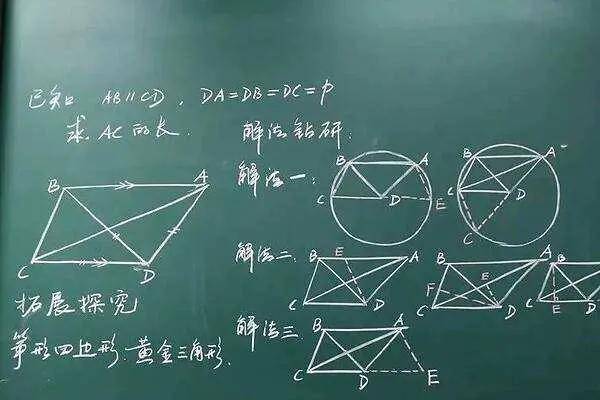 已知 AB∥CD, DA=DB=DC=p
求 AC的长. 解法钻研:
解法一:
B A
C D E
B A
C D
C
B A
C D
解法二:
B E A
C D
B A
F E
C D
B
C E D
拓展探究
筝形四边形:黄金三角形.
解法三
B A
C D E